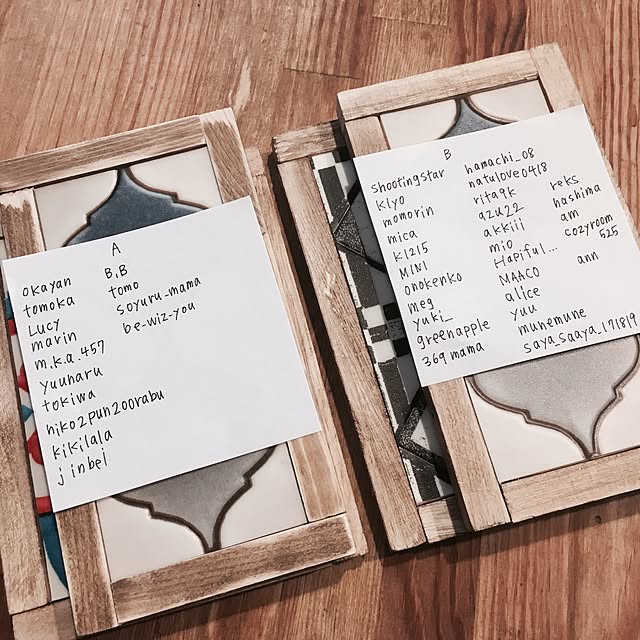 A
okayan
tomoka
Lucy
marin
m.k.a.457
yuuharu
tokiwa
hiko2pun200rabu
kikilala
jinbei
B.B
tomo
soyuru_mama
be-wiz-you
B
shootingstar
kiyo
momorin
mica
k1215
MINI
onokenko
meg
yuki_
greenapple
369mama
hamachi_08
natulove0418
rita9k
azu22
akkiii
mio
Hapiful...
NAACO
alice
yuu
munemune
saya_saaya_171819
reks
hashina
am
cozyroom
525
ann